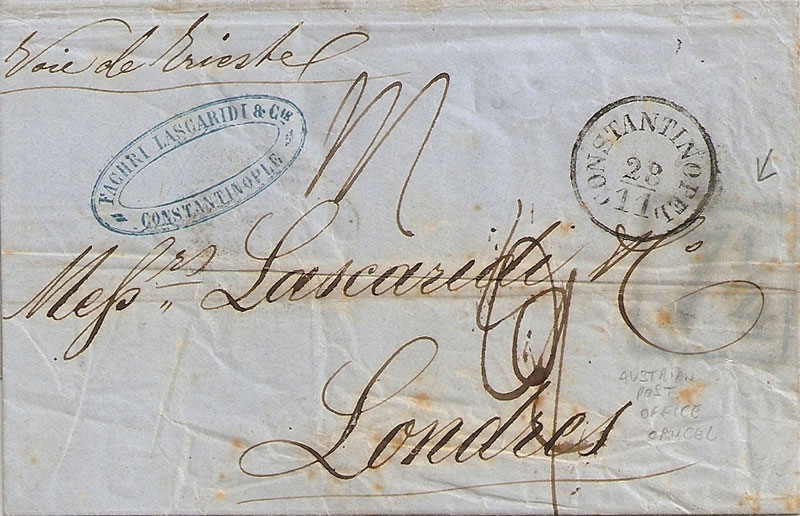 Voie de Trieste
FACHRI LASCARIDI & Cie
CONSTANTINOPLE
CONSTANTINOPEL
28
11
Messrs Lascaridi & Co
Londres
AUSTRIAN
POST
OFFICE
CANCEL